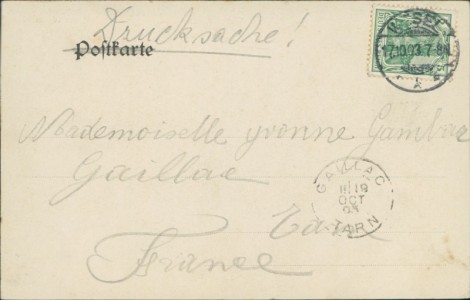 Drucksache!
Postkarte
17.10.03.7-8N
Mademoiselle Yvonne
Gaillac
Tarn
France
GAILLAC
19
OCT
TARN